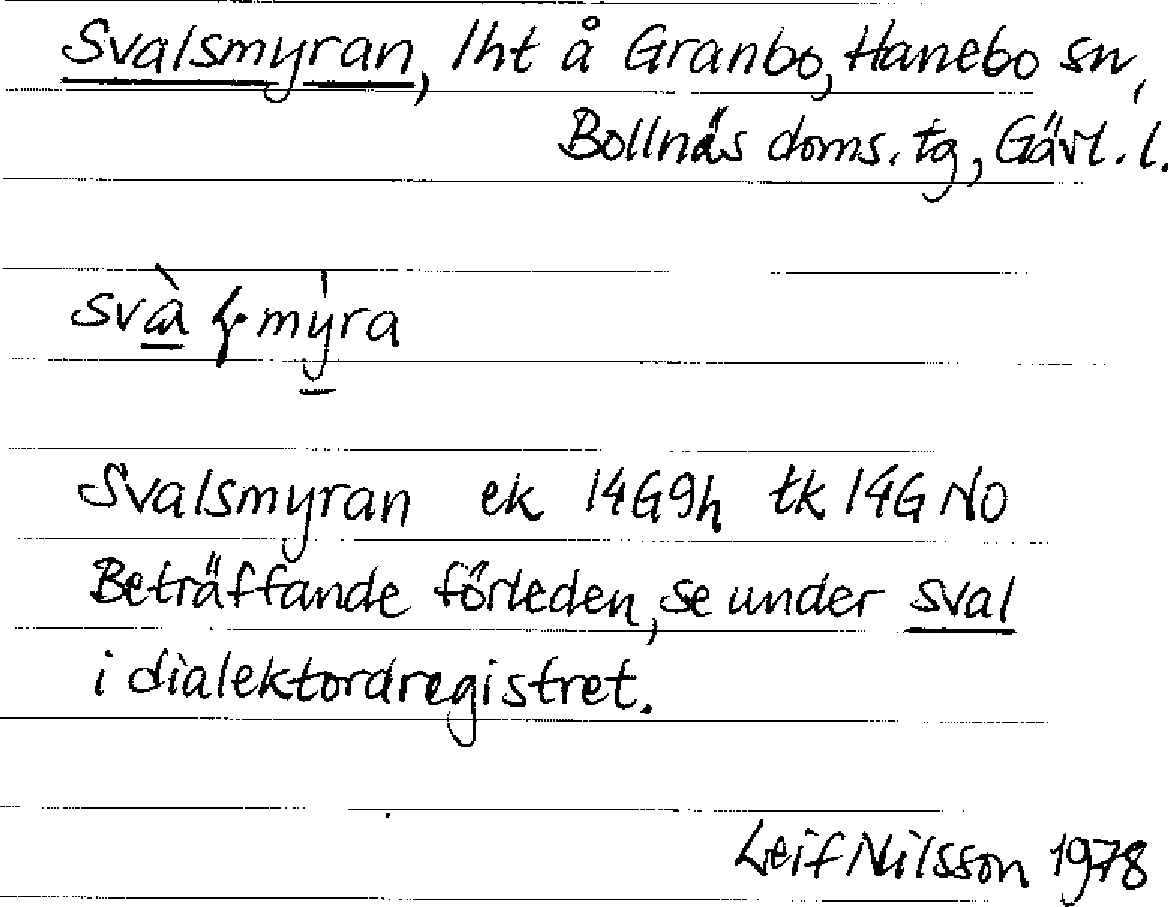 Svalsmyran, lht å Granbo, Hanebo sn,
Bollnäs doms. tg, Gävl. l.
myra
Svalsmyran ek 14G9h tk 14G NO
Beträffande förleden, se under sval
i dialektordregistret.
Leif Nilsson 1978